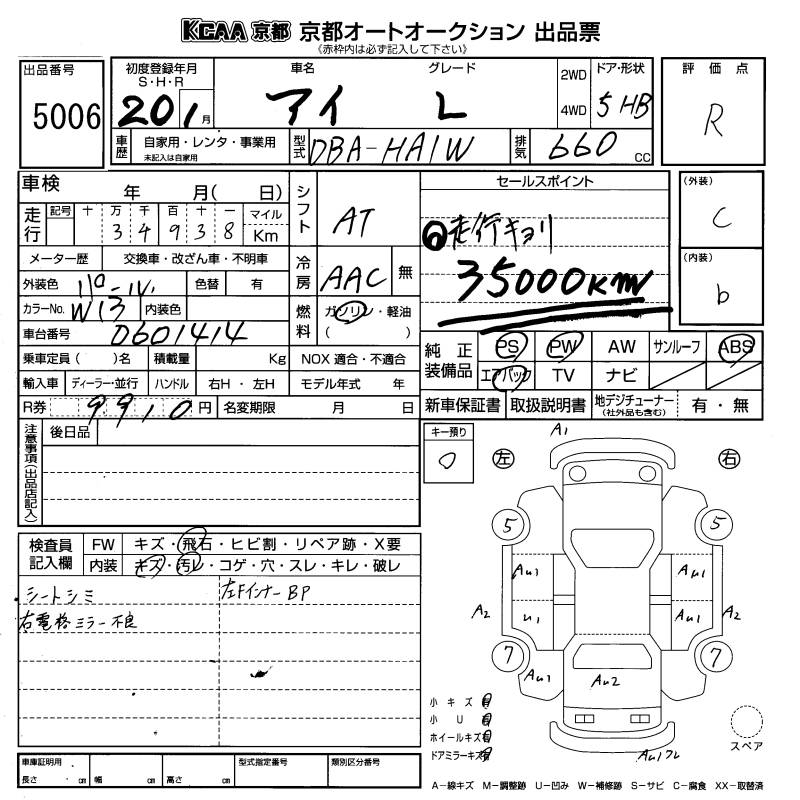 KCAA 京都 京都オートオークション 出品票
《赤枠内は必ず記入して下さい》
出品番号
5006
初度登録年月
S・H・R
20 1 月
車名
アイ
グレード
L
2WD
4WD
ドア・形状
5 HB
評価点
R
車歴
自家用・レンタ・事業用
未記入は自家用
型式
DBA-HA1W
排気
660 cc
車検 年 月( 日)
走行
記号 十 万 千 百 十 一 マイル
3 4 9 3 8 Km
メーター歴 交換車・改ざん車・不明車
外装色
色替 有
カラーNo. W13 内装色
車台番号 0601414
乗車定員( )名 積載量 Kg
NOX 適合・不適合
輸入車 ディーラー・並行 ハンドル 右H・左H
モデル年式 年
R券 9910 円 名変期限 月 日
シフト
AT
冷房
AAC 無
燃料
ガソリン・軽油
( )
セールスポイント
走行キョリ
35000km
(外装)
C
(内装)
b
純正装備品
PS PW AW サンルーフ ABS
エアバック TV ナビ
新車保証書 取扱説明書 地デジチューナー
(社外品も含む)
有・無
注意事項(出品店記入)
後日品
キー預り
0
検査員記入欄
FW キズ・飛石・ヒビ割・リペア跡・X要
内装 キズ・汚レ・コゲ・穴・スレ・キレ・破レ
シートシミ
左Fインナー BP
右電格ミラー不良
A1
左
右
5
5
Au1
Au1
A2
u1
Au1
A2
7
7
Au1
Au2
小キズ 有
小U 有
ホイールキズ 有
ドアミラーキズ 有
Au1ワレ
スペア
車庫証明用
長さ cm 幅 cm 高さ cm
型式指定番号
類別区分番号
A-線キズ M-調整跡 U-凹み W-補修跡 S-サビ C-腐食 XX-取替済